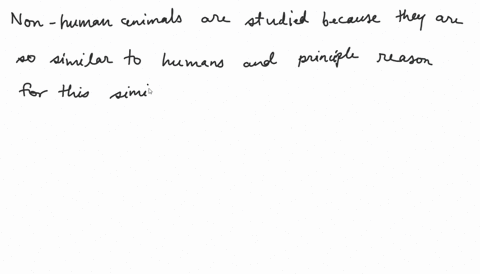 Non-human animals are studied because they are
so similar to humans and principle reason
for this simi